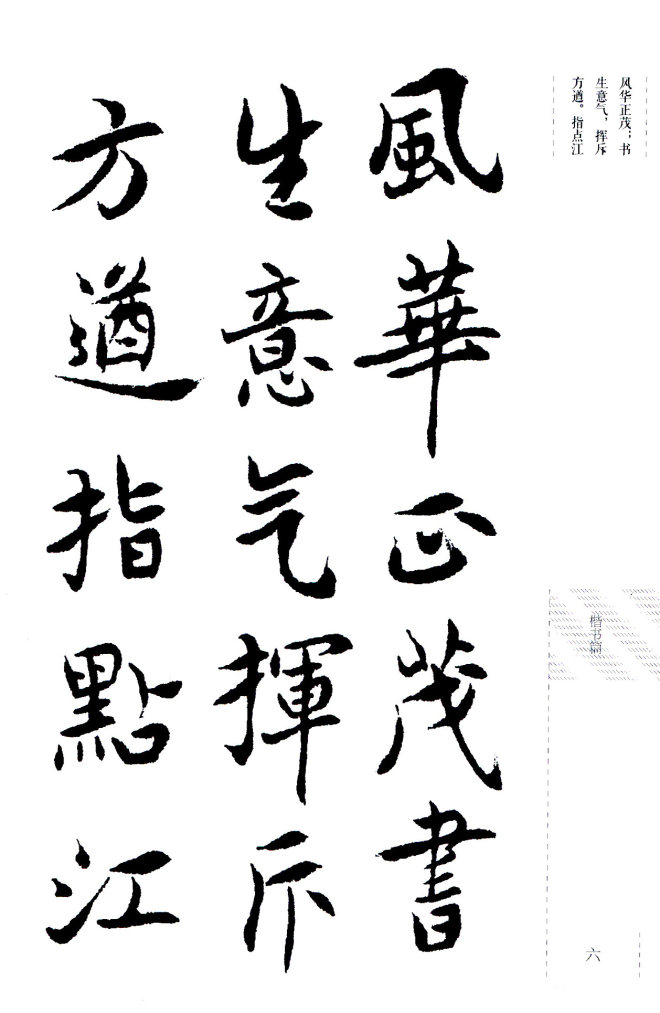 風華正茂書
生意气揮斥
方遒指點江
风华正茂；书
生意气，挥斥
方遒。指点江
楷书篇
六